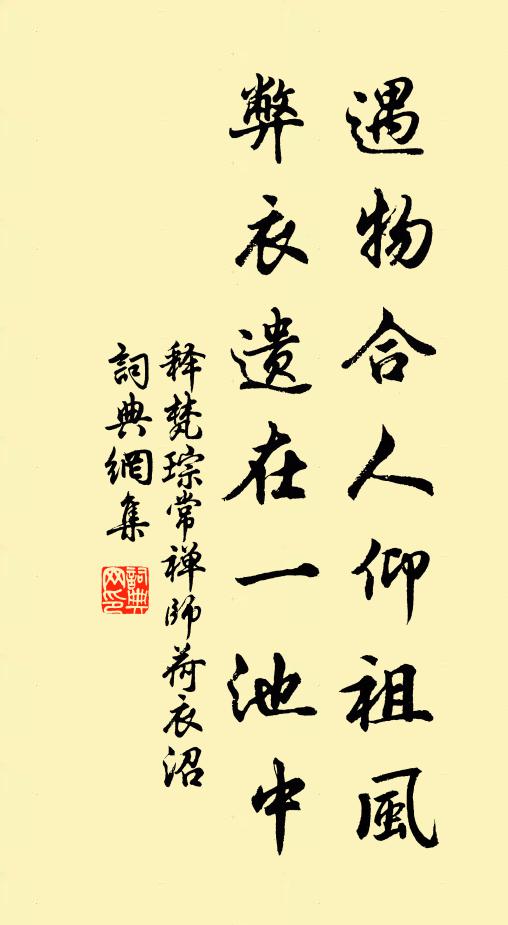 遇物合人仰祖風
弊衣遺在一池中
释梵琮常禅師荷衣沼
詞典網集
詞典网印